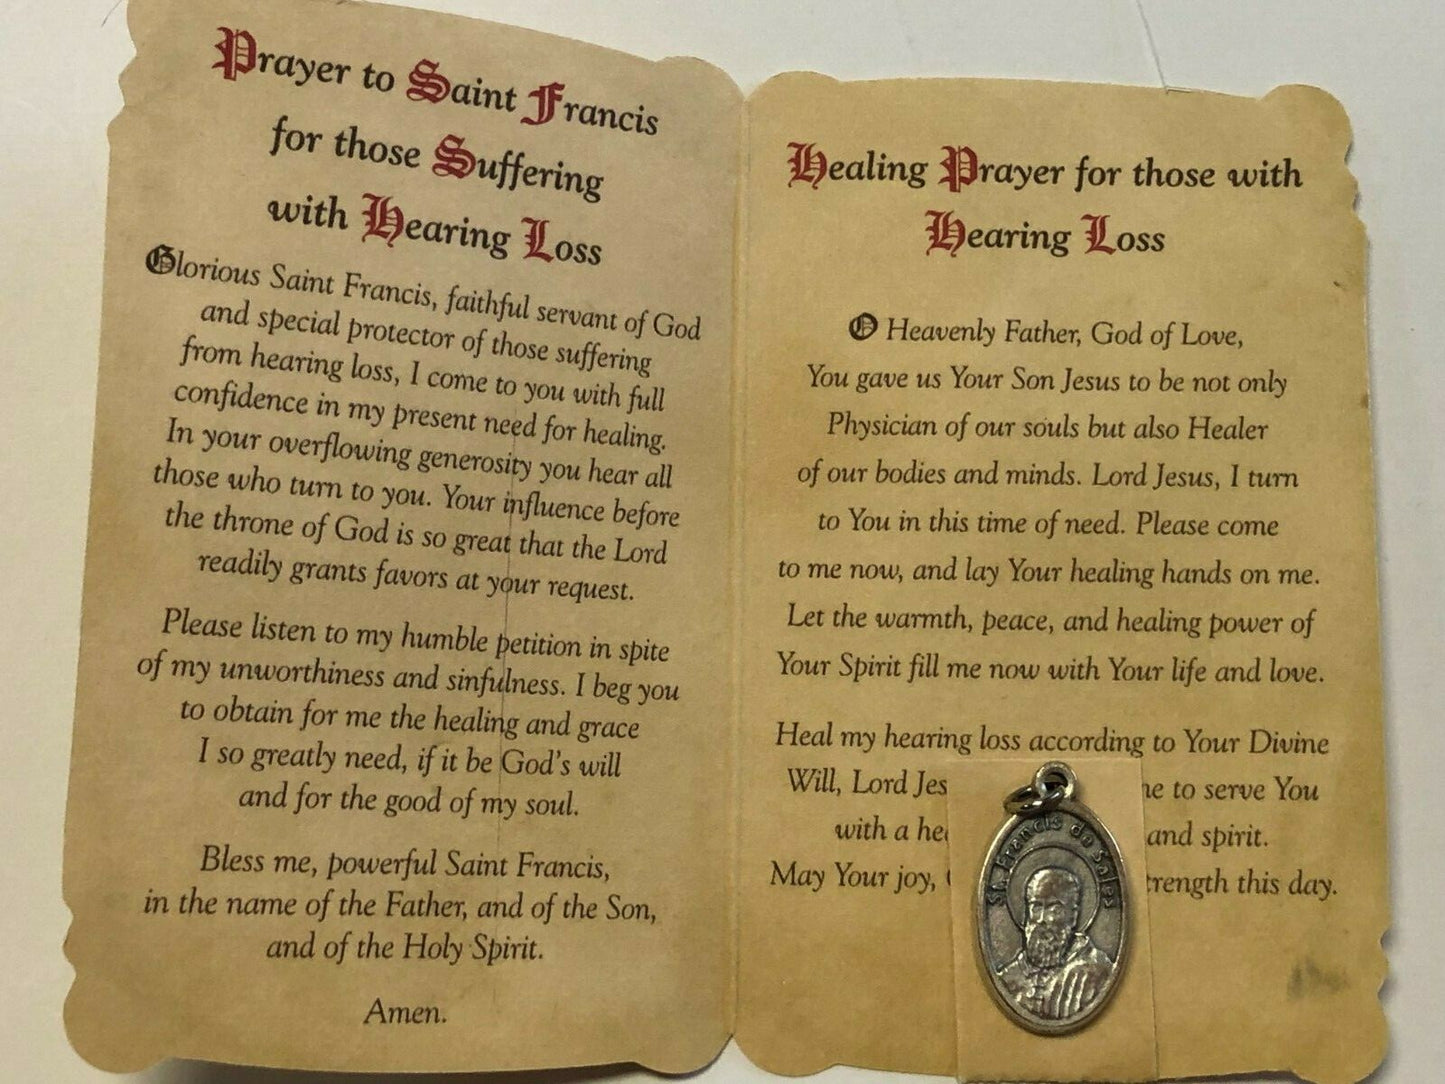 Prayer to Saint Francis
for those Suffering
with Hearing Loss
Glorious Saint Francis, faithful servant of God
and special protector of those suffering
from hearing loss, I come to you with full
confidence in my present need for healing.
In your overflowing generosity you hear all
those who turn to you. Your influence before
the throne of God is so great that the Lord
readily grants favors at your request.
Please listen to my humble petition in spite
of my unworthiness and sinfulness. I beg you
to obtain for me the healing and grace
I so greatly need, if it be God's will
and for the good of my soul.
Bless me, powerful Saint Francis,
in the name of the Father, and of the Son,
and of the Holy Spirit.
Amen.
Healing Prayer for those with
Hearing Loss
O Heavenly Father, God of Love,
You gave us Your Son Jesus to be not only
Physician of our souls but also Healer
of our bodies and minds. Lord Jesus, I turn
to You in this time of need. Please come
to me now, and lay Your healing hands on me.
Let the warmth, peace, and healing power of
Your Spirit fill me now with Your life and love.
Heal my hearing loss according to Your Divine
Will, Lord to serve You
with a and spirit.
May Your joy, this day.
St. Francis de Sales